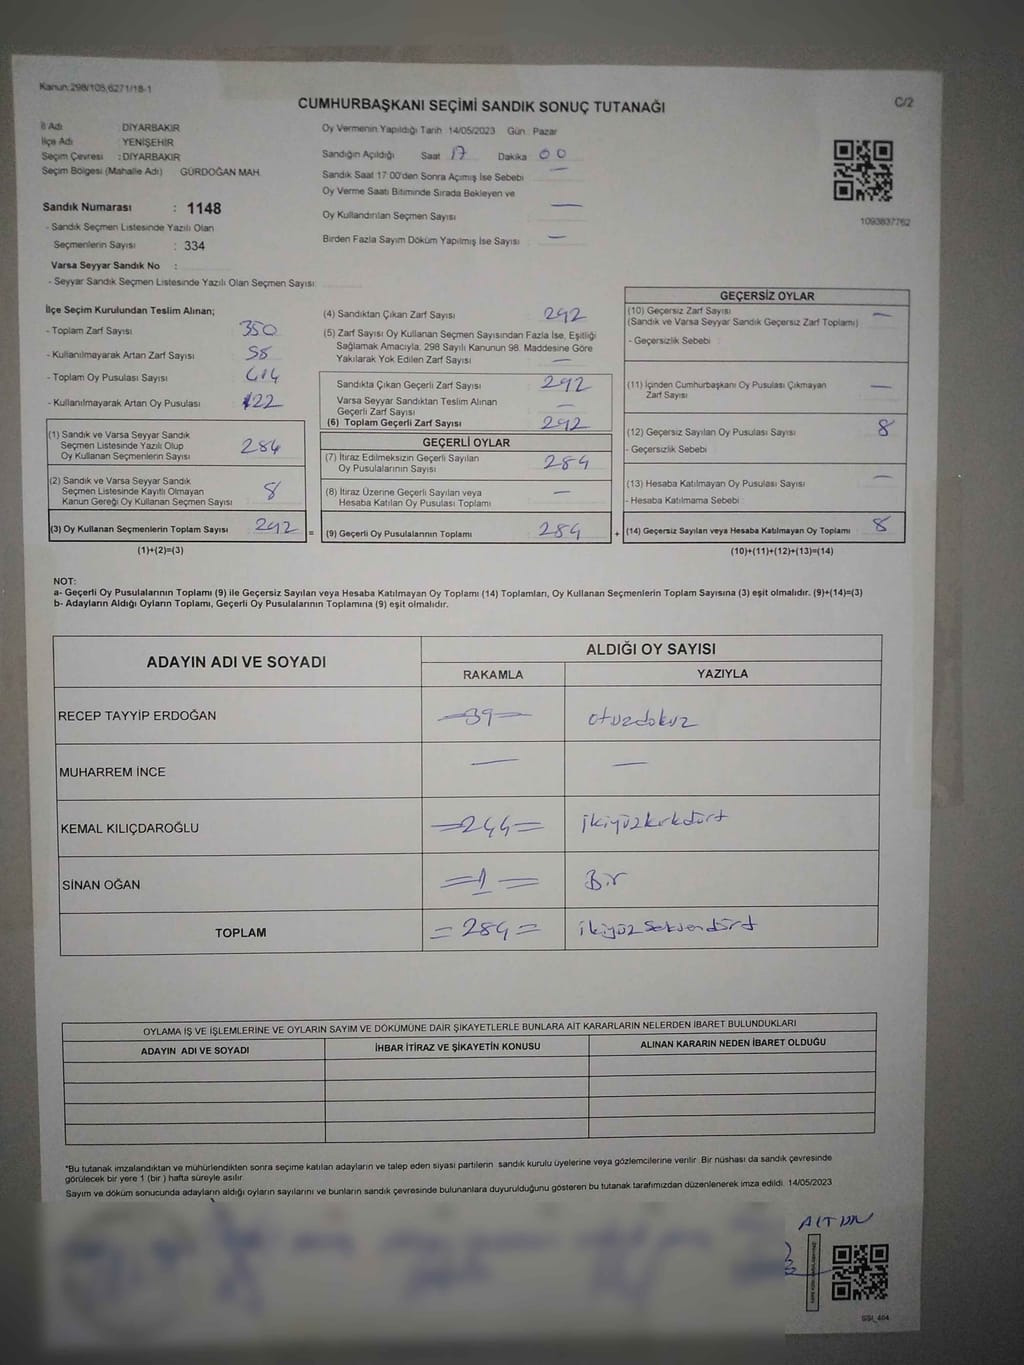 Kanun:298/105,6271/18-1
CUMHURBAŞKANI SEÇİMİ SANDIK SONUÇ TUTANAĞI
C/2
İl Adı : DİYARBAKIR
İlçe Adı : YENİŞEHİR
Seçim Çevresi : DİYARBAKIR
Seçim Bölgesi (Mahalle Adı) GÜRDOĞAN MAH.
Sandık Numarası : 1148
- Sandık Seçmen Listesinde Yazılı Olan
Seçmenlerin Sayısı : 334
Varsa Seyyar Sandık No :
- Seyyar Sandık Seçmen Listesinde Yazılı Olan Seçmen Sayısı:
Oy Vermenin Yapıldığı Tarih 14/05/2023 Gün : Pazar
Sandığın Açıldığı Saat 17 Dakika 00
Sandık Saat 17:00'den Sonra Açımış İse Sebebi —
Oy Verme Saati Bitiminde Sırada Bekleyen ve
Oy Kullandırılan Seçmen Sayısı —
Birden Fazla Sayım Döküm Yapılmış İse Sayısı —
1093837762
İlçe Seçim Kurulundan Teslim Alınan;
- Toplam Zarf Sayısı 350
- Kullanılmayarak Artan Zarf Sayısı 58
- Toplam Oy Pusulası Sayısı 414
- Kullanılmayarak Artan Oy Pusulası 122
(1) Sandık ve Varsa Seyyar Sandık
Seçmen Listesinde Yazılı Olup
Oy Kullanan Seçmenlerin Sayısı 284
(2) Sandık ve Varsa Seyyar Sandık
Seçmen Listesinde Kayıtlı Olmayan
Kanun Gereği Oy Kullanan Seçmen Sayısı 8
(3) Oy Kullanan Seçmenlerin Toplam Sayısı 292 =
(1)+(2)=(3)
(4) Sandıktan Çıkan Zarf Sayısı 292
(5) Zarf Sayısı Oy Kullanan Seçmen Sayısından Fazla İse, Eşitliği
Sağlamak Amacıyla, 298 Sayılı Kanunun 98. Maddesine Göre
Yakılarak Yok Edilen Zarf Sayısı —
Sandıkta Çıkan Geçerli Zarf Sayısı 292
Varsa Seyyar Sandıktan Teslim Alınan
Geçerli Zarf Sayısı —
(6) Toplam Geçerli Zarf Sayısı 292
GEÇERLİ OYLAR
(7) İtiraz Edilmeksizin Geçerli Sayılan
Oy Pusulalarının Sayısı 284
(8) İtiraz Üzerine Geçerli Sayılan veya
Hesaba Katılan Oy Pusulası Toplamı —
(9) Geçerli Oy Pusulalarının Toplamı 284 +
GEÇERSİZ OYLAR
(10) Geçersiz Zarf Sayısı —
(Sandık ve Varsa Seyyar Sandık Geçersiz Zarf Toplamı)
- Geçersizlik Sebebi :
(11) İçinden Cumhurbaşkanı Oy Pusulası Çıkmayan
Zarf Sayısı —
(12) Geçersiz Sayılan Oy Pusulası Sayısı 8
- Geçersizlik Sebebi :
(13) Hesaba Katılmayan Oy Pusulası Sayısı —
- Hesaba Katılmama Sebebi :
(14) Geçersiz Sayılan veya Hesaba Katılmayan Oy Toplamı 8
(10)+(11)+(12)+(13)=(14)
NOT:
a- Geçerli Oy Pusulalarının Toplamı (9) ile Geçersiz Sayılan veya Hesaba Katılmayan Oy Toplamı (14) Toplamları, Oy Kullanan Seçmenlerin Toplam Sayısına (3) eşit olmalıdır. (9)+(14)=(3)
b- Adayların Aldığı Oyların Toplamı, Geçerli Oy Pusulalarının Toplamına (9) eşit olmalıdır.
ADAYIN ADI VE SOYADI
ALDIĞI OY SAYISI
RAKAMLA YAZIYLA
RECEP TAYYİP ERDOĞAN —39— otuzdokuz
MUHARREM İNCE — —
KEMAL KILIÇDAROĞLU =244= ikiyüzkırkdört
SİNAN OĞAN =1= Bir
TOPLAM =284= ikiyüzseksendört
OYLAMA İŞ VE İŞLEMLERİNE VE OYLARIN SAYIM VE DÖKÜMÜNE DAİR ŞİKAYETLERLE BUNLARA AİT KARARLARIN NELERDEN İBARET BULUNDUKLARI
ADAYIN ADI VE SOYADI İHBAR İTİRAZ VE ŞİKAYETİN KONUSU ALINAN KARARIN NEDEN İBARET OLDUĞU
*Bu tutanak imzalandıktan ve mühürlendikten sonra seçime katılan adayların ve talep eden siyasi partilerin sandık kurulu üyelerine veya gözlemcilerine verilir. Bir nüshası da sandık çevresinde
görülecek bir yere 1 (bir ) hafta süreyle asılır.
Sayım ve döküm sonucunda adayların aldığı oyların sayılarını ve bunların sandık çevresinde bulunanlara duyurulduğunu gösteren bu tutanak tarafımızdan düzenlenerek imza edildi. 14/05/2023